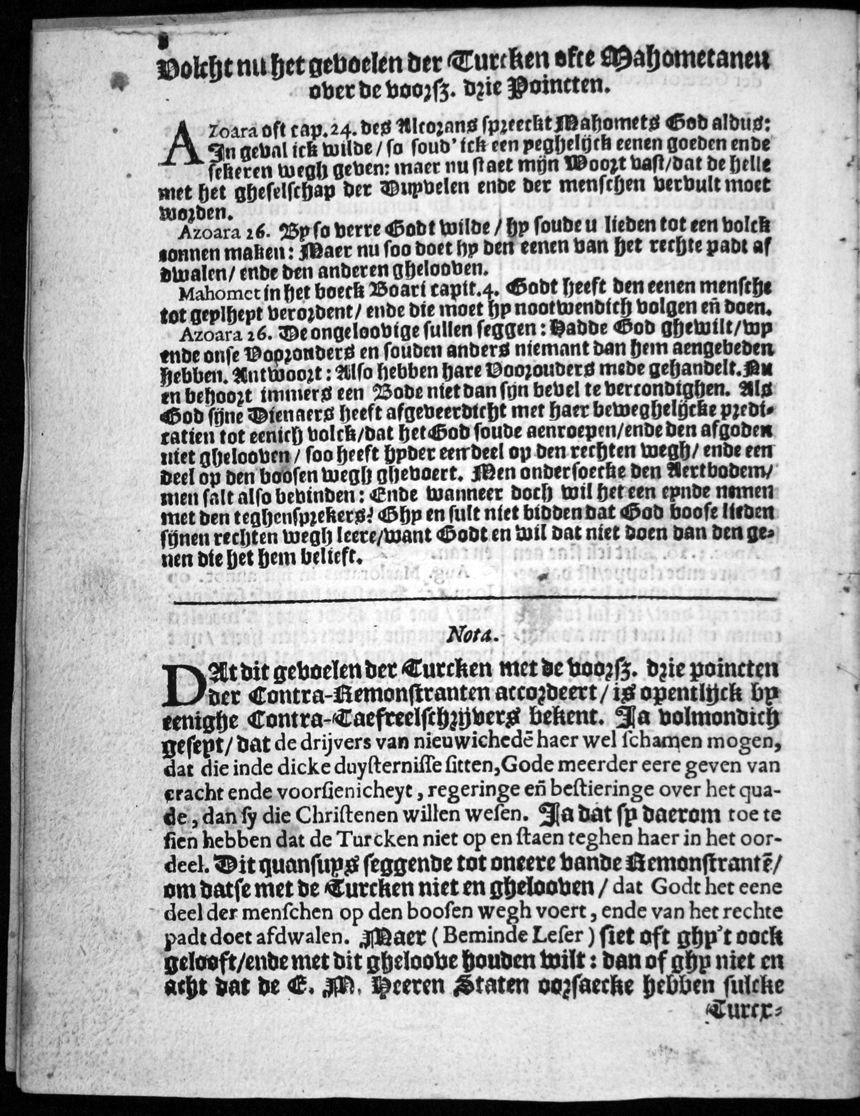 8
Volcht nu het gevoelen der Turcken ofte Mahometanen
over de voorsz. drie Poincten.
AZoara oft cap. 24. des Alcorans spreeckt Mahomets God aldus:
In geval ick wilde / so soud' ick een yeghelijck eenen goeden ende
sekeren wegh geven: maer nu staet mijn Woort vast/dat de helle
met het gheselschap der Duyvelen ende der menschen vervult moet
worden.
Azoara 26. By so verre Godt wilde / hy soude u lieden tot een volck
connen maken: Maer nu soo doet hy den eenen van het rechte padt af
dwalen/ ende den anderen ghelooven.
Mahomet in het boeck Boari capit. 4. Godt heeft den eenen mensche
tot geylheyt verordent/ ende die moet hy nootwendich volgen eñ doen.
Azoara 26. De ongeloovige sullen seggen: Hadde God ghewilt/wy
ende onse Voorouders en souden anders niemant dan hem aengebeden
hebben. Antwoort: Also hebben hare Voorouders mede gehandelt. Nu
en behoort immers een Bode niet dan sijn bevel te vercondighen. Als
God sijne Dienaers heeft afgeveerdicht met haer beweghelijcke predi-
catien tot eenich volck/dat het God soude aenroepen/ende den afgoden
niet ghelooven / soo heeft hyder een deel op den rechten wegh/ ende een
deel op den boosen wegh ghevoert. Men ondersoecke den Aertbodem/
men salt also bevinden: Ende wanneer doch wil het een eynde nemen
met den teghensprekers? Ghy en sult niet bidden dat God boose lieden
sijnen rechten wegh leere/want Godt en wil dat niet doen dan den ge-
nen die het hem belieft.
Nota.
DAt dit gevoelen der Turcken met de voorsz. drie poincten
der Contra-Remonstranten accordeert / is opentlijck by
eenighe Contra-Taefreelschrijvers bekent. Ja volmondich
geseyt/ dat de drijvers van nieuwichedē haer wel schamen mogen,
dat die inde dicke duysternisse sitten, Gode meerder eere geven van
cracht ende voorsienicheyt, regeringe eñ bestieringe over het qua-
de, dan sy die Christenen willen wesen. Ja dat sy daerom toe te
sien hebben dat de Turcken niet op en staen teghen haer in het oor-
deel. Dit quansuys seggende tot oneere vande Remonstrantē/
om datse met de Turcken niet en ghelooven / dat Godt het eene
deel der menschen op den boosen wegh voert, ende van het rechte
padt doet afdwalen. Maer ( Beminde Leser ) siet oft ghy't oock
gelooft/ende met dit gheloove houden wilt: dan of ghy niet en
acht dat de E. M. Heeren Staten oorsaecke hebben sulcke
Turcx-